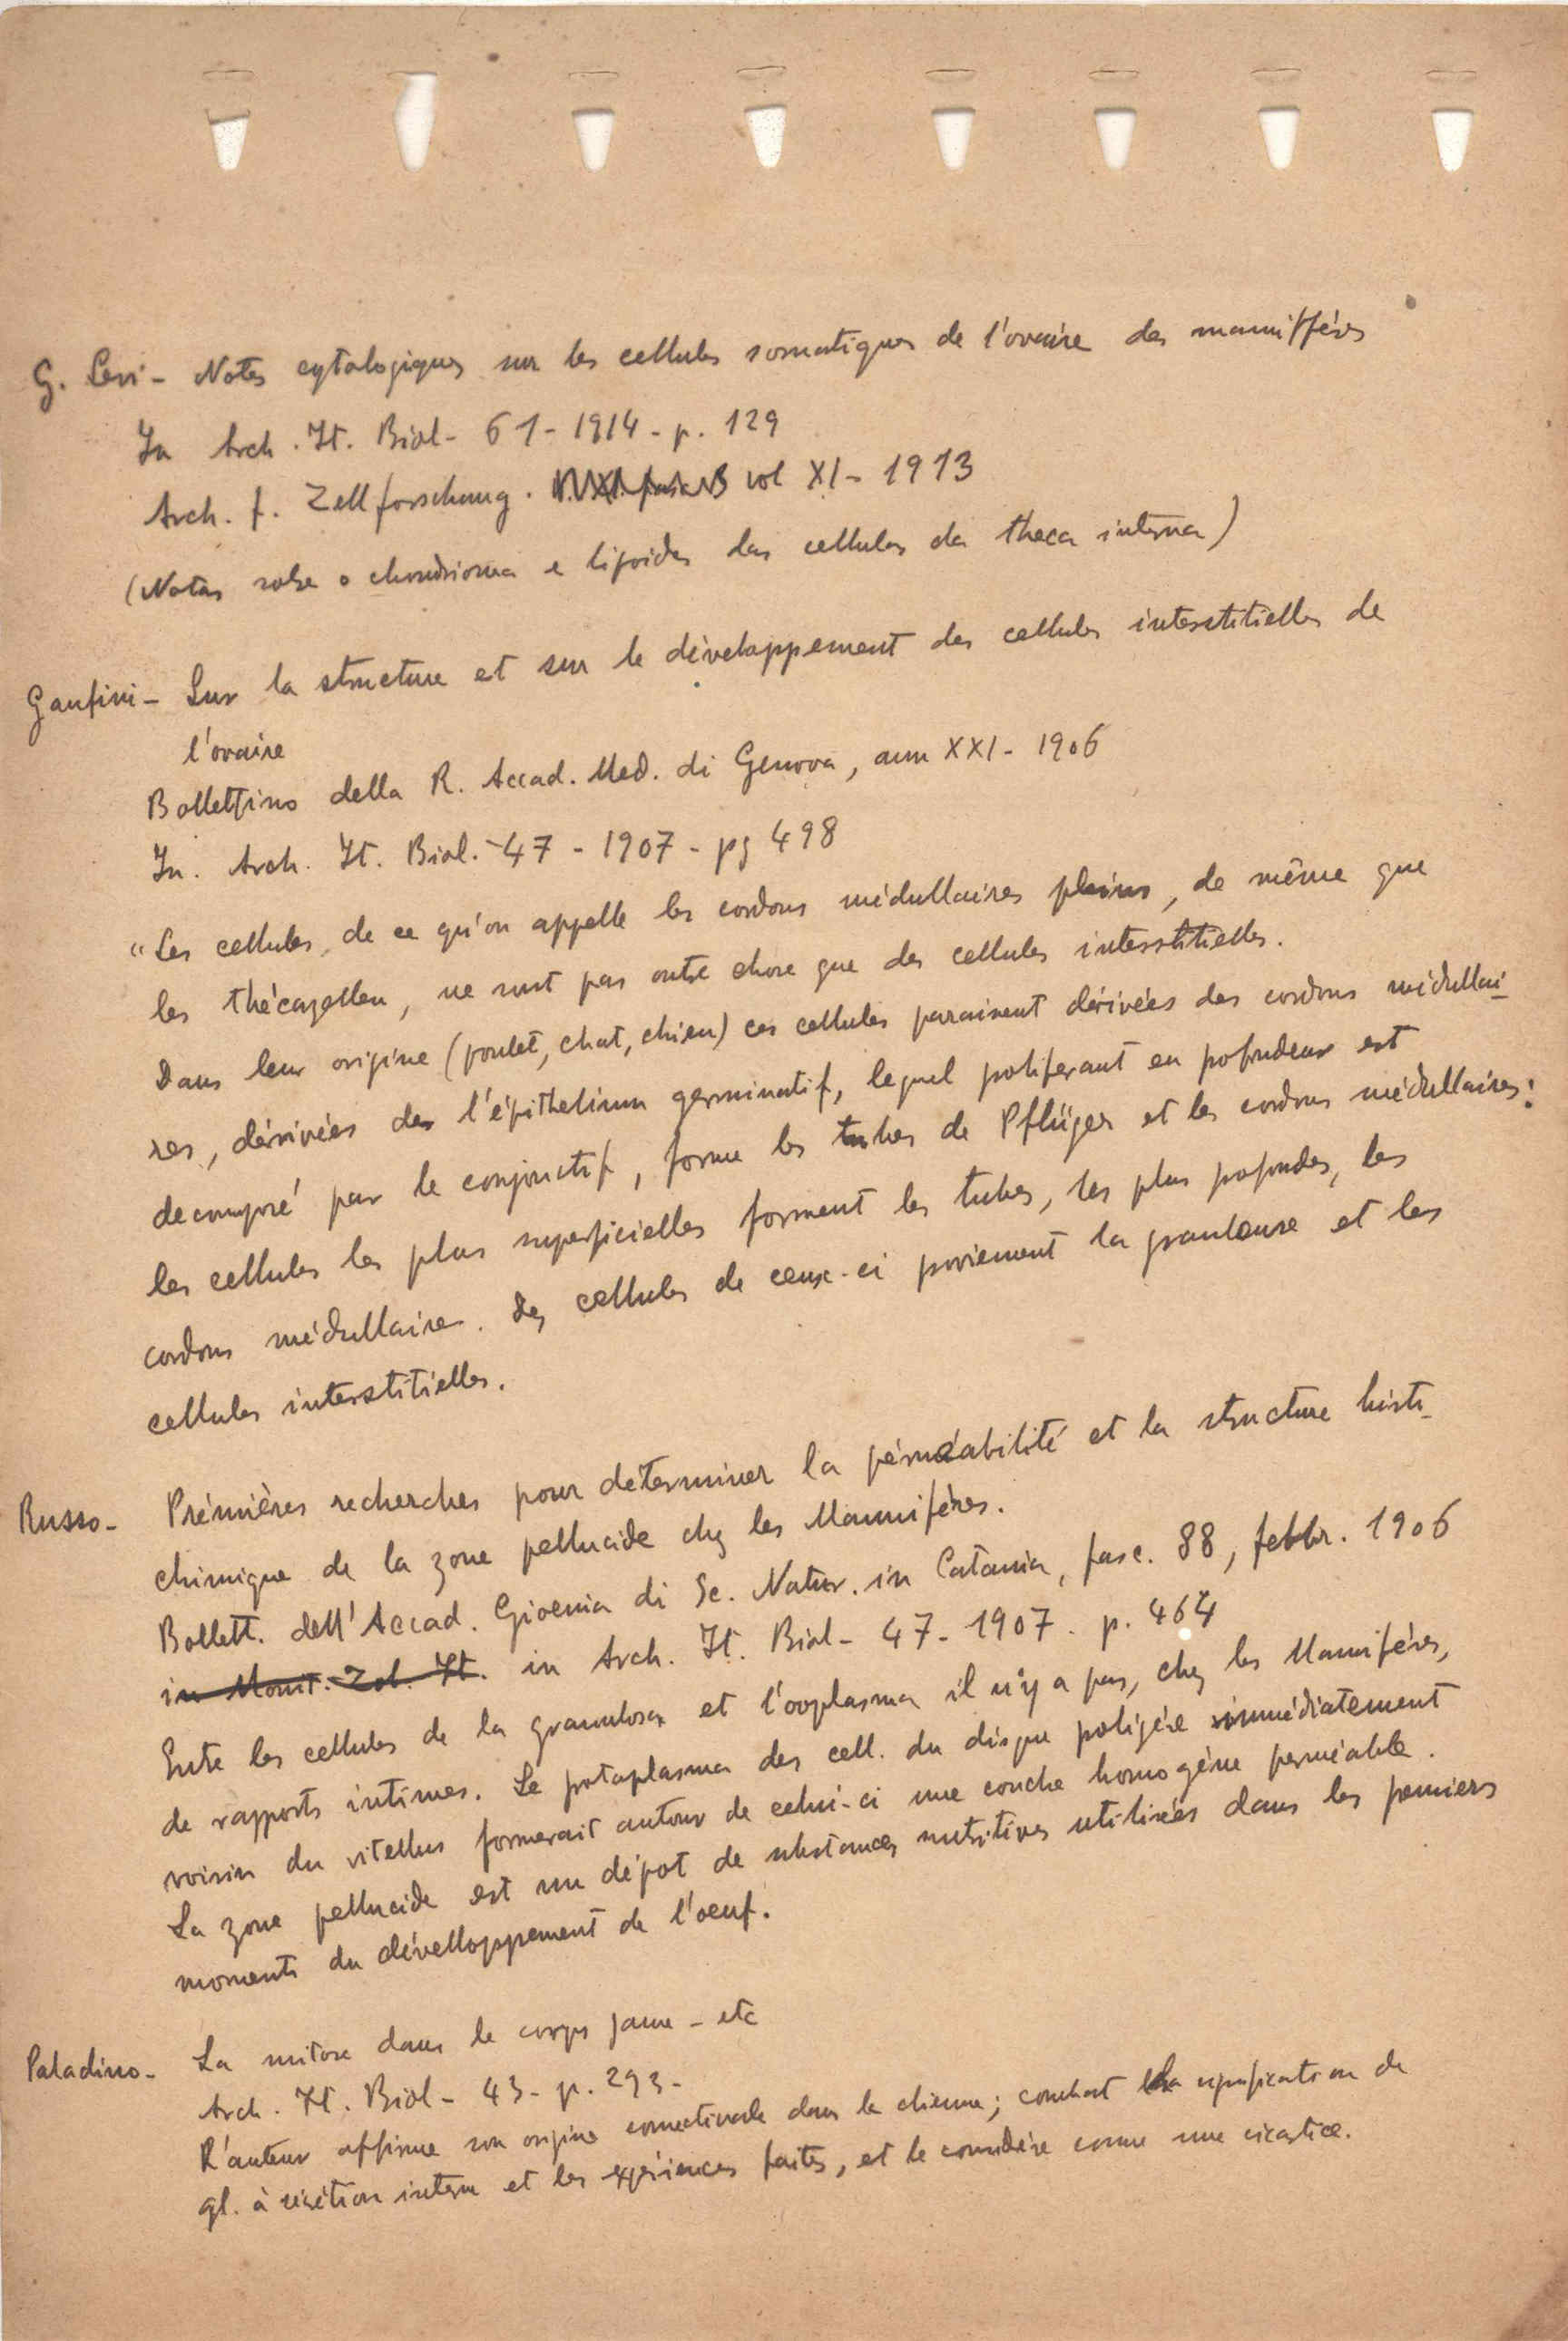 G. Levi - Notes cytologiques sur les cellules somatiques de l'ovaire des mammifères
In Arch. It. Biol - 61 - 1914 - p. 129
Arch. f. Zellforschung. vol XI - 1913
(Notas sobre o chondrioma e lipoides das cellulas da theca interna)
Ganfini - Sur la structure et sur le développement des cellules interstitielles de
l'ovaire
Bollettino della R. Accad. Med. di Genova, ann XXI - 1906
In. Arch. It. Biol. - 47 - 1907 - pg 498
"Les cellules, de ce qu'on appelle les cordons médullaires pleins, de même que
les thécazellen, ne sont pas autre chose que des cellules interstitielles.
Dans leur origine (poulet, chat, chien) ces cellules paraissent dérivées des cordons médullai-
res, dérivées de l'épithelium germinatif, lequel proliferant en profondeur est
decomposé par le conjonctif, forme les tubes de Pflüger et les cordons médullaires:
les cellules les plus superficielles forment les tubes, les plus profondes, les
cordons médullaires. Des cellules de ceux-ci proviennent la granleuse et les
cellules interstitielles.
Russo - Prémières recherches pour déterminer la pérméabilité et la structure histo-
chimique de la zone pellucide chez les Mammifères.
Bollett. dell'Accad. Gioenia di Sc. Natur. in Catania, fasc. 88, febbr. 1906
in Monit. Zol. It. in Arch. It. Biol - 47 - 1907 - p. 464
Entre les cellules de la granulosa et l'ooplasma il n'y a pas, chez les Mammifères,
de rapports intimes. Le protoplasma des cell. du disque proligère immédiatement
voisin du vitellus formerait autour de celui-ci une couche homogène perméable.
La zone pellucide est un dépot de substances nutritives utilisées dans les premiers
moments du dévelloppement de l'oeuf.
Paladino - La mitose dans le corps jaune - etc
Arch. It. Biol - 43 - p. 293 -
L'auteur affirme son origine connectivale dans la chienne; combat la signification de
gl. à sécrétion interne et les expériences faites, et le considère comme une cicatrice.